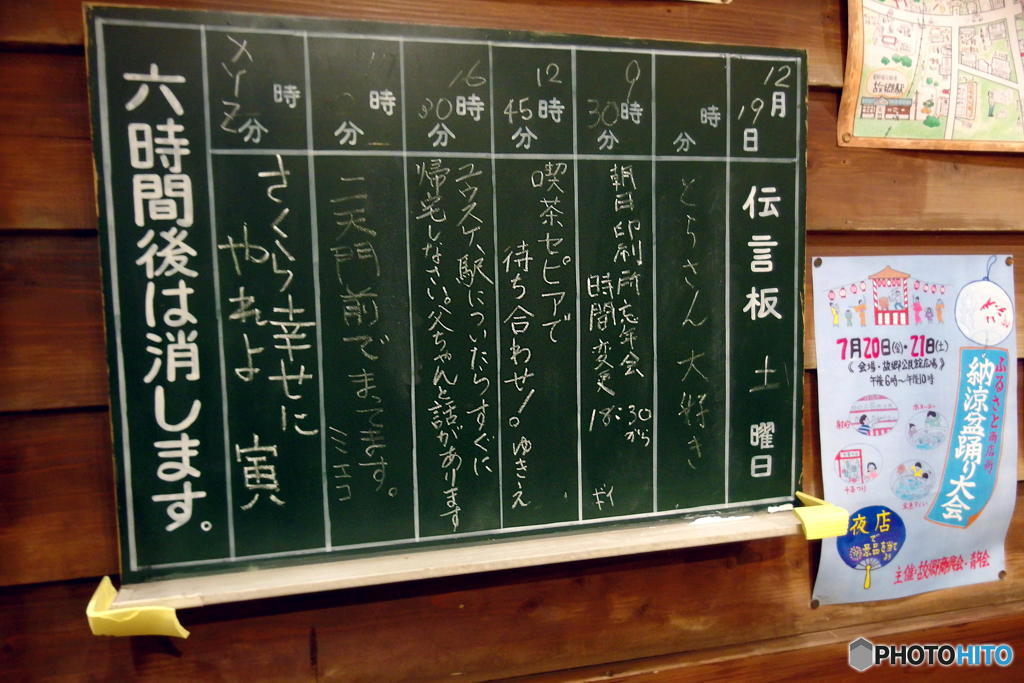 12月
19日
伝言板 土曜日
時
分
とらさん大好き
9時
30分
朝日印刷所忘年会
時間変更 18:30から
12時
45分
喫茶セピアで
待ち合わせ! ゆきえ
16時
30分
ユウスケ、駅についたらすぐに
帰宅しなさい。父ちゃんと話があります
時
分
二天門前でまってます。 ミエコ
時
分
さくら幸せに
やれよ 寅
六時間後は消します。
故郷駅
7月20日(金)・21日(土)
《会場・故郷公民館広場》
午後6時〜午後10時
ふるさと商店街
納涼盆踊り大会
夜店
で
景品を当て
主催・故郷商興会・青年会
PHOTOHITO